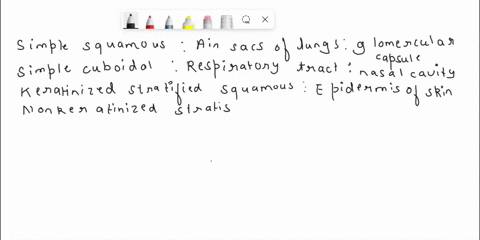 Simple squamous : Air sacs of lungs : glomercular capsule
Simple cuboidal : Respiratory tract : nasal cavity
Keratinized stratified squamous : Epidermis of skin
Nonkeratinized stratis